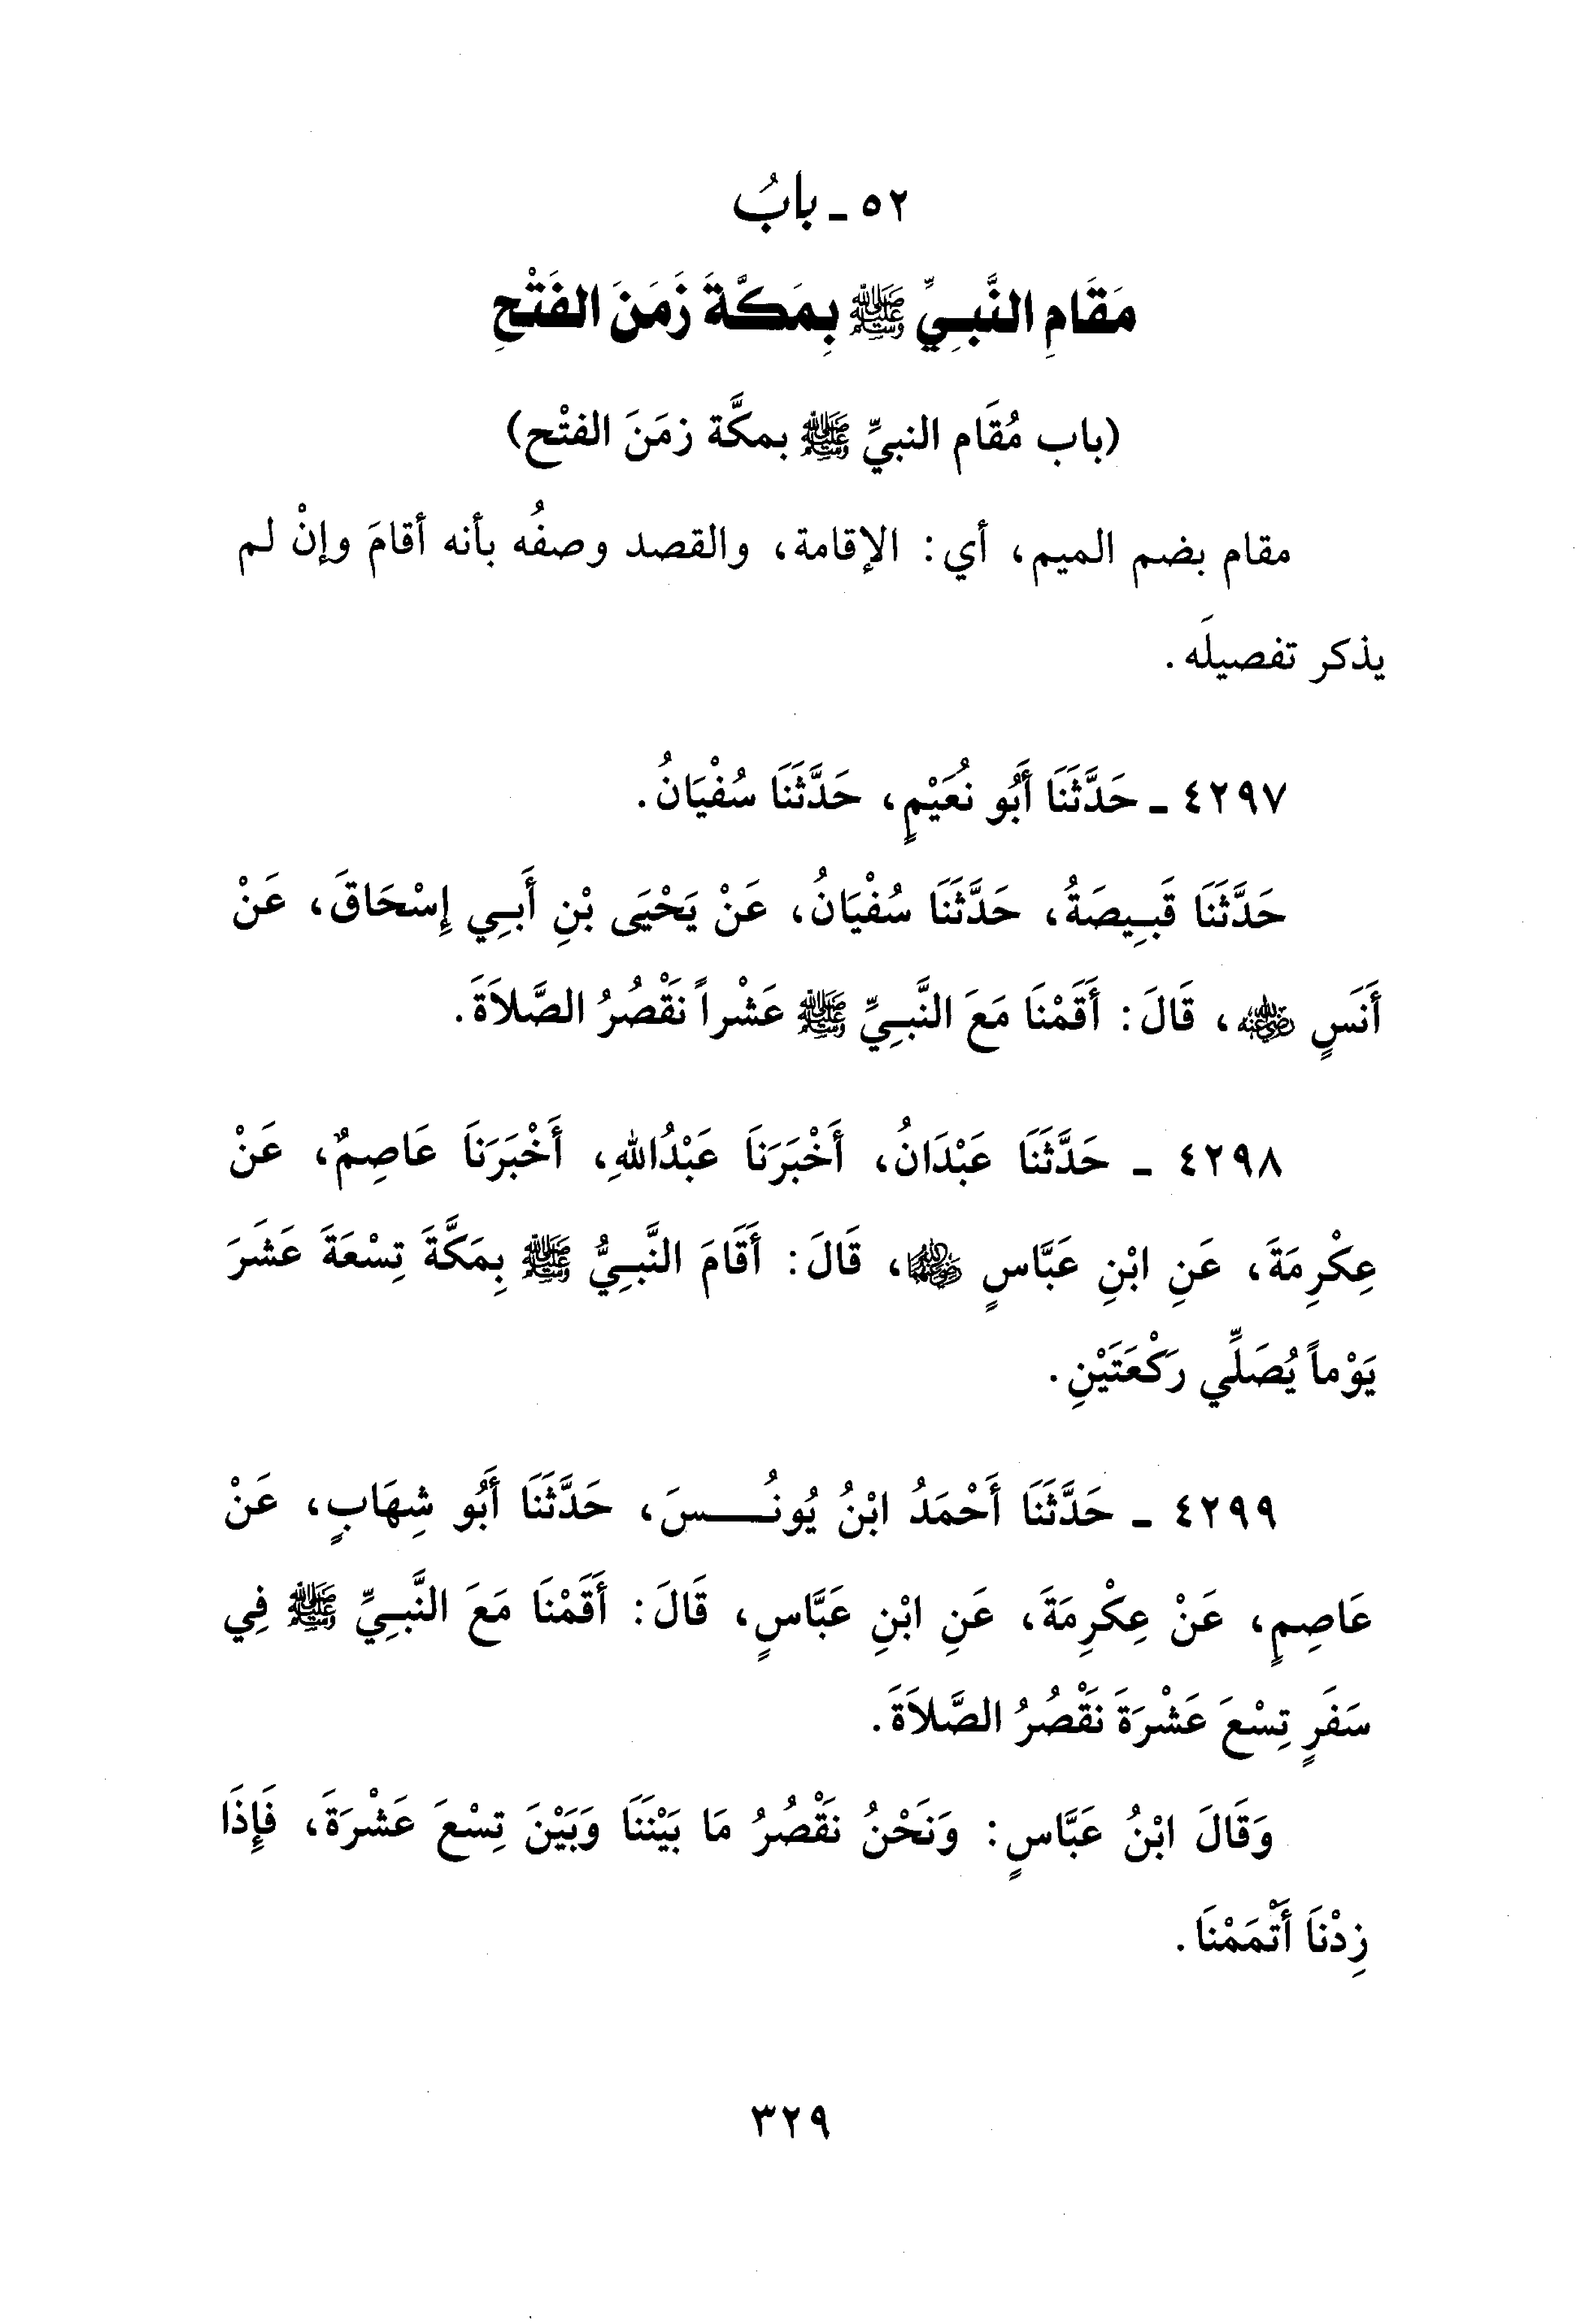 ٥٢ ـ بابُ
مَقَامِ النَّبِيِّ ﷺ بِمَكَّةَ زَمَنَ الفَتْحِ
(باب مُقَام النبيِّ ﷺ بمكَّة زمَنَ الفتْح)
مقام بضم الميم، أي: الإقامة، والقصد وصفُه بأنه أقامَ وإنْ لم
يذكر تفصيلَه.
٤٢٩٧ ـ حَدَّثَنَا أَبُو نُعَيْمٍ، حَدَّثَنَا سُفْيَانُ.
حَدَّثَنَا قَبِيصَةُ، حَدَّثَنَا سُفْيَانُ، عَنْ يَحْيَى بْنِ أَبِي إِسْحَاقَ، عَنْ
أَنَسٍ رضي الله عنه، قَالَ: أَقَمْنَا مَعَ النَّبِيِّ ﷺ عَشْراً نَقْصُرُ الصَّلاَةَ.
٤٢٩٨ ـ حَدَّثَنَا عَبْدَانُ، أَخْبَرَنَا عَبْدُاللهِ، أَخْبَرَنَا عَاصِمٌ، عَنْ
عِكْرِمَةَ، عَنِ ابْنِ عَبَّاسٍ رضي الله عنهما، قَالَ: أَقَامَ النَّبِيُّ ﷺ بِمَكَّةَ تِسْعَةَ عَشَرَ
يَوْماً يُصَلِّي رَكْعَتَيْنِ.
٤٢٩٩ ـ حَدَّثَنَا أَحْمَدُ ابْنُ يُونُسَ، حَدَّثَنَا أَبُو شِهَابٍ، عَنْ
عَاصِمٍ، عَنْ عِكْرِمَةَ، عَنِ ابْنِ عَبَّاسٍ، قَالَ: أَقَمْنَا مَعَ النَّبِيِّ ﷺ فِي
سَفَرٍ تِسْعَ عَشْرَةَ نَقْصُرُ الصَّلاَةَ.
وَقَالَ ابْنُ عَبَّاسٍ: وَنَحْنُ نَقْصُرُ مَا بَيْنَنَا وَبَيْنَ تِسْعَ عَشْرَةَ، فَإِذَا
زِدْنَا أَتْمَمْنَا.
٣٢٩